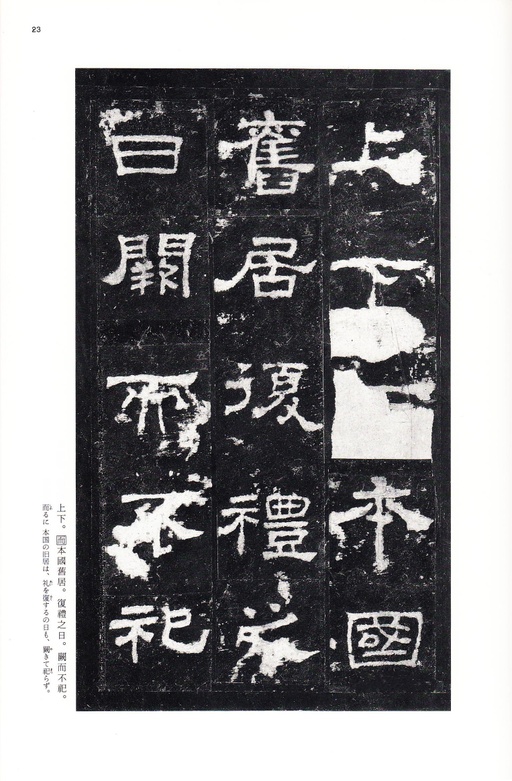 23
上下
本國
舊居復禮之
日闕而不祀
上下。而本國舊居。復禮之日。闕而不祀。
而るに本国の旧居は、礼を復するの日も、闕きて祀らず。